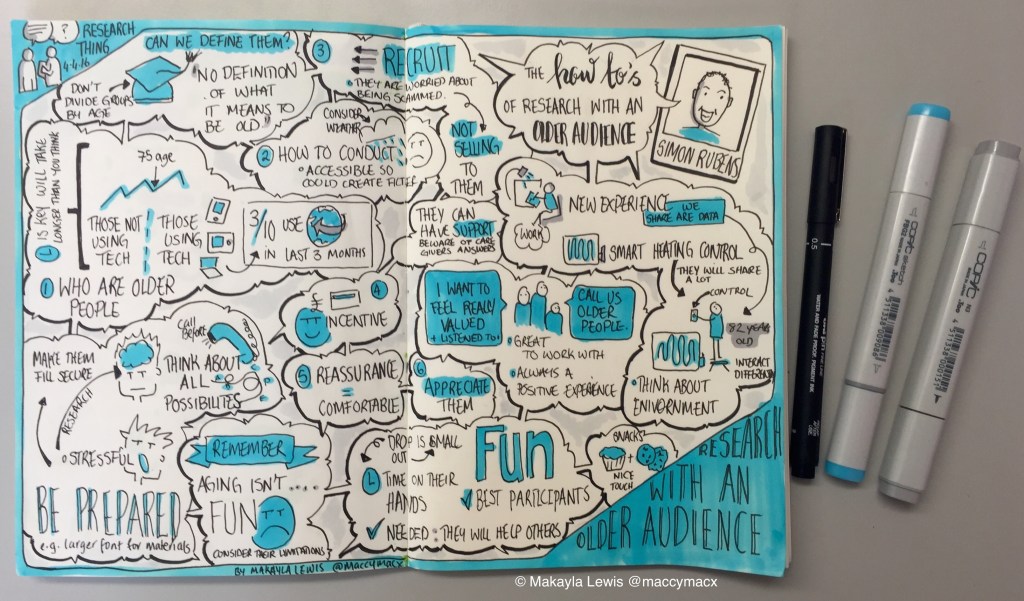 RESEARCH
THING
4-4-16
?
CAN WE DEFINE THEM?
DON'T
DIVIDE GROUPS
BY AGE
"NO DEFINITION
OF WHAT
IT MEANS TO
BE OLD"
IS KEY WILL TAKE
LONGER THAN YOU THINK
75 age
THOSE NOT
USING
TECH
THOSE
USING
TECH
3/10 USE
IN LAST 3 MONTHS
1 WHO ARE OLDER
PEOPLE
3
RECRUIT
THEY ARE WORRIED ABOUT
BEING SCAMMED
CONSIDER
WEATHER
2 HOW TO CONDUCT
ACCESSIBLE SO
COULD CREATE FILTER
NOT
SELLING
TO
THEM
THE how to's
OF RESEARCH WITH AN
OLDER AUDIENCE
SIMON RUBENS
THEY CAN
HAVE SUPPORT
BEWARE OF CARE
GIVERS ANSWERS
WORK
NEW EXPERIENCE
WE
SHARE ARE DATA
SMART HEATING CONTROL
THEY WILL SHARE
A LOT
CONTROL
82 YEARS
OLD
INTERACT
THINK ABOUT
ENIVORNMENT
I WANT TO
FEEL REALLY
VALUED
+ LISTENED TO
CALL US
OLDER
PEOPLE.
GREAT
TO WORK WITH
ALWAYS A
POSITIVE EXPERIENCE
4
INCENTIVE
5 REASSURANCE
=
COMFORTABLE
6
APPRECIATE
THEM
MAKE THEM
FILL SECURE
RESEARCH
STRESSFUL
Call
Before
THINK ABOUT
ALL
POSSIBILITIES
BE PREPARED
e.g. larger font for materials
REMEMBER
AGING ISN'T.....
FUN
CONSIDER THEIR LIMITATIONS
BY MAKAYLA LEWIS @MACCYMACX
DROP IS SMALL
OUT
TIME ON THEIR
HANDS
NEEDED: THEY WILL HELP OTHERS
Fun
BEST PARTICIPANTS
SNACKS
+
NICE
TOUCH
RESEARCH
WITH AN
OLDER AUDIENCE
0.5
COPIC
COPIC
© Makayla Lewis @maccymacx